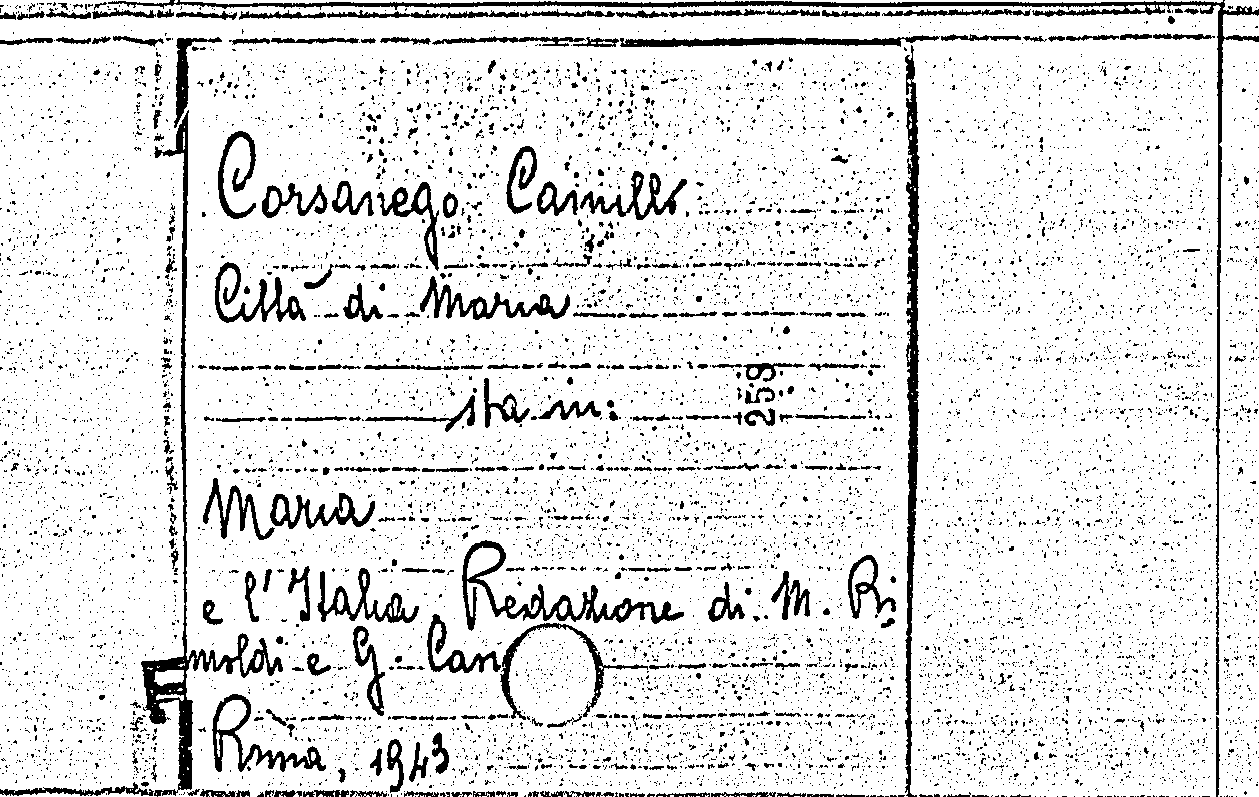 Corsanego Camillo
Città di Maria
259
sta in:
Maria
e l'Italia. Redazione di M. Ri-
moldi e G. Can
Roma, 1943